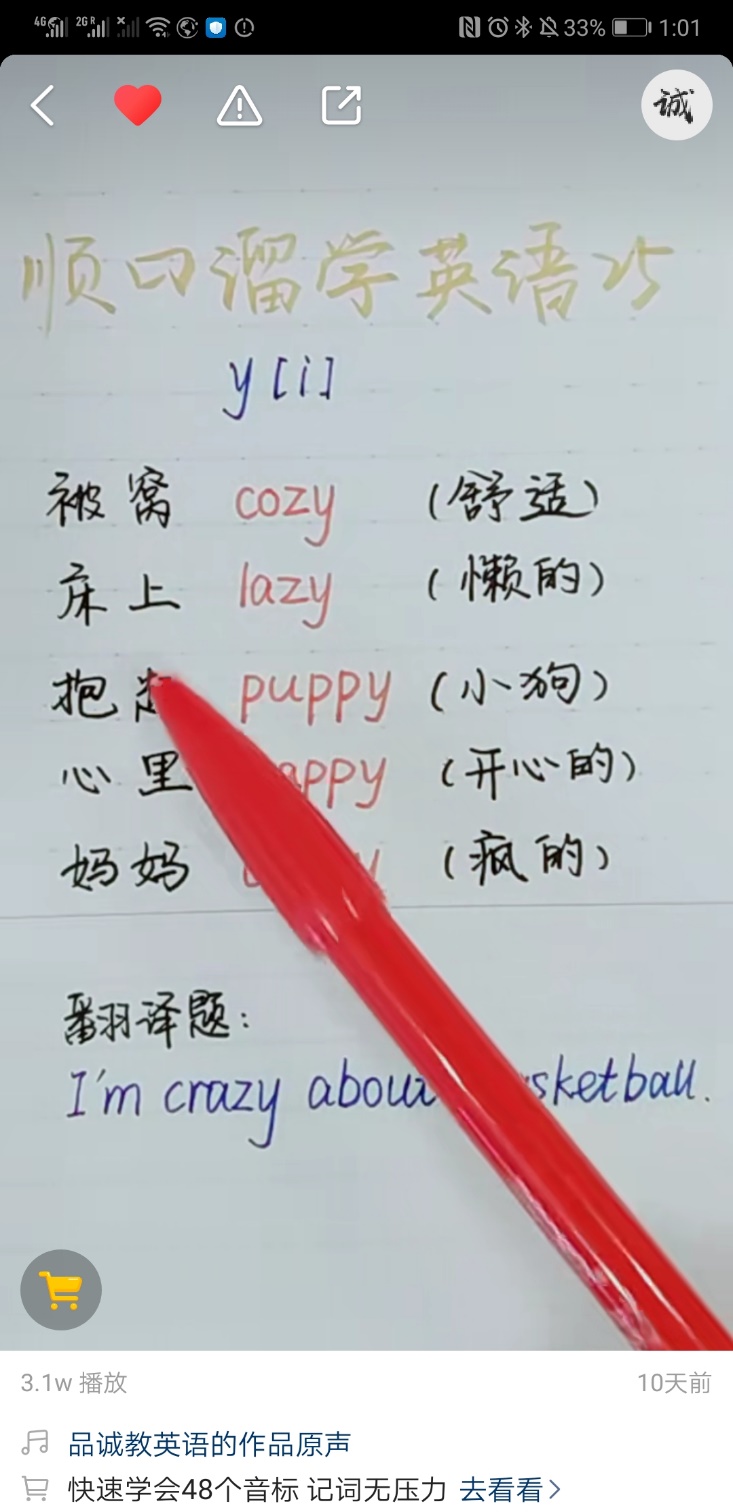 4G 2G R 33% 1:01
诚
顺口溜学英语25
y [i]
被窝 cozy (舒适)
床上 lazy (懒的)
抱 puppy (小狗)
心里 appy (开心的)
妈妈 (疯的)
翻译题:
I'm crazy about sketball.
3.1w 播放 10天前
品诚教英语的作品原声
快速学会48个音标 记词无压力 去看看>